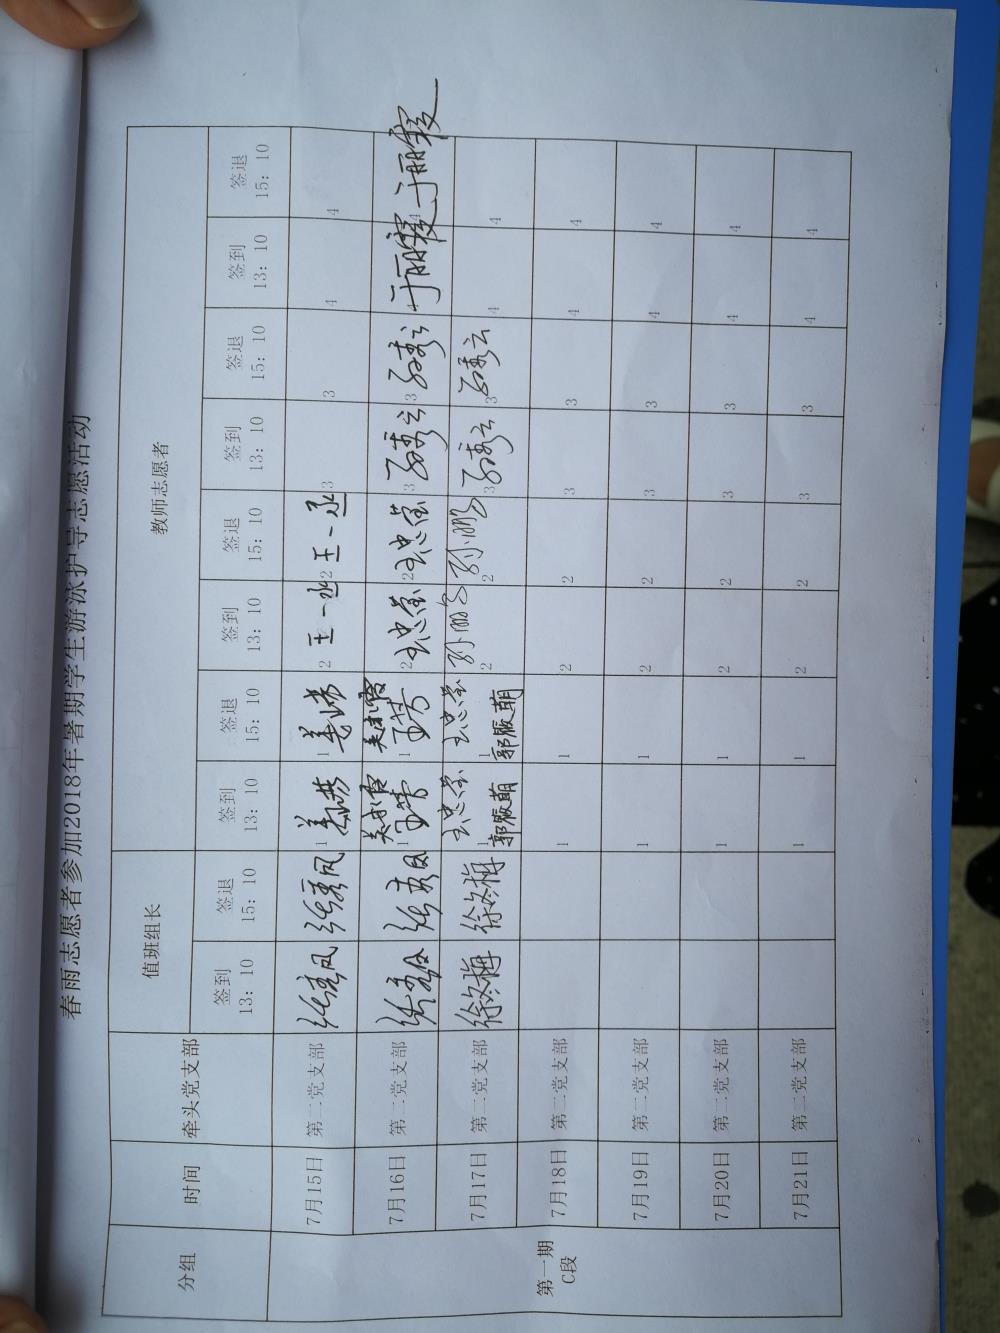 春雨志愿者参加2018年暑期学生游泳护导志愿活动
分组 时间 牵头党支部 值班组长 教师志愿者
签到 签退 签到 签退 签到 签退 签到 签退 签到 签退
13：10 15：10 13：10 15：10 13：10 15：10 13：10 15：10 13：10 15：10
第一期
C段
7月15日 第二党支部 1 1 2 王一 2 王一 3 3 4 4
7月16日 第二党支部 1 1 2 忠 2 忠 3 秀云 3 秀云 4 于丽 4 于丽
7月17日 第二党支部 徐 梅 徐 梅 1 忠 郭 萌 1 忠 郭 萌 2 孙鹏 2 孙鹏 3 秀云 3 秀云 4 4
7月18日 第二党支部 1 1 2 2 3 3 4 4
7月19日 第二党支部 1 1 2 2 3 3 4 4
7月20日 第二党支部 1 1 2 2 3 3 4 4
7月21日 第二党支部 1 1 2 2 3 3 4 4